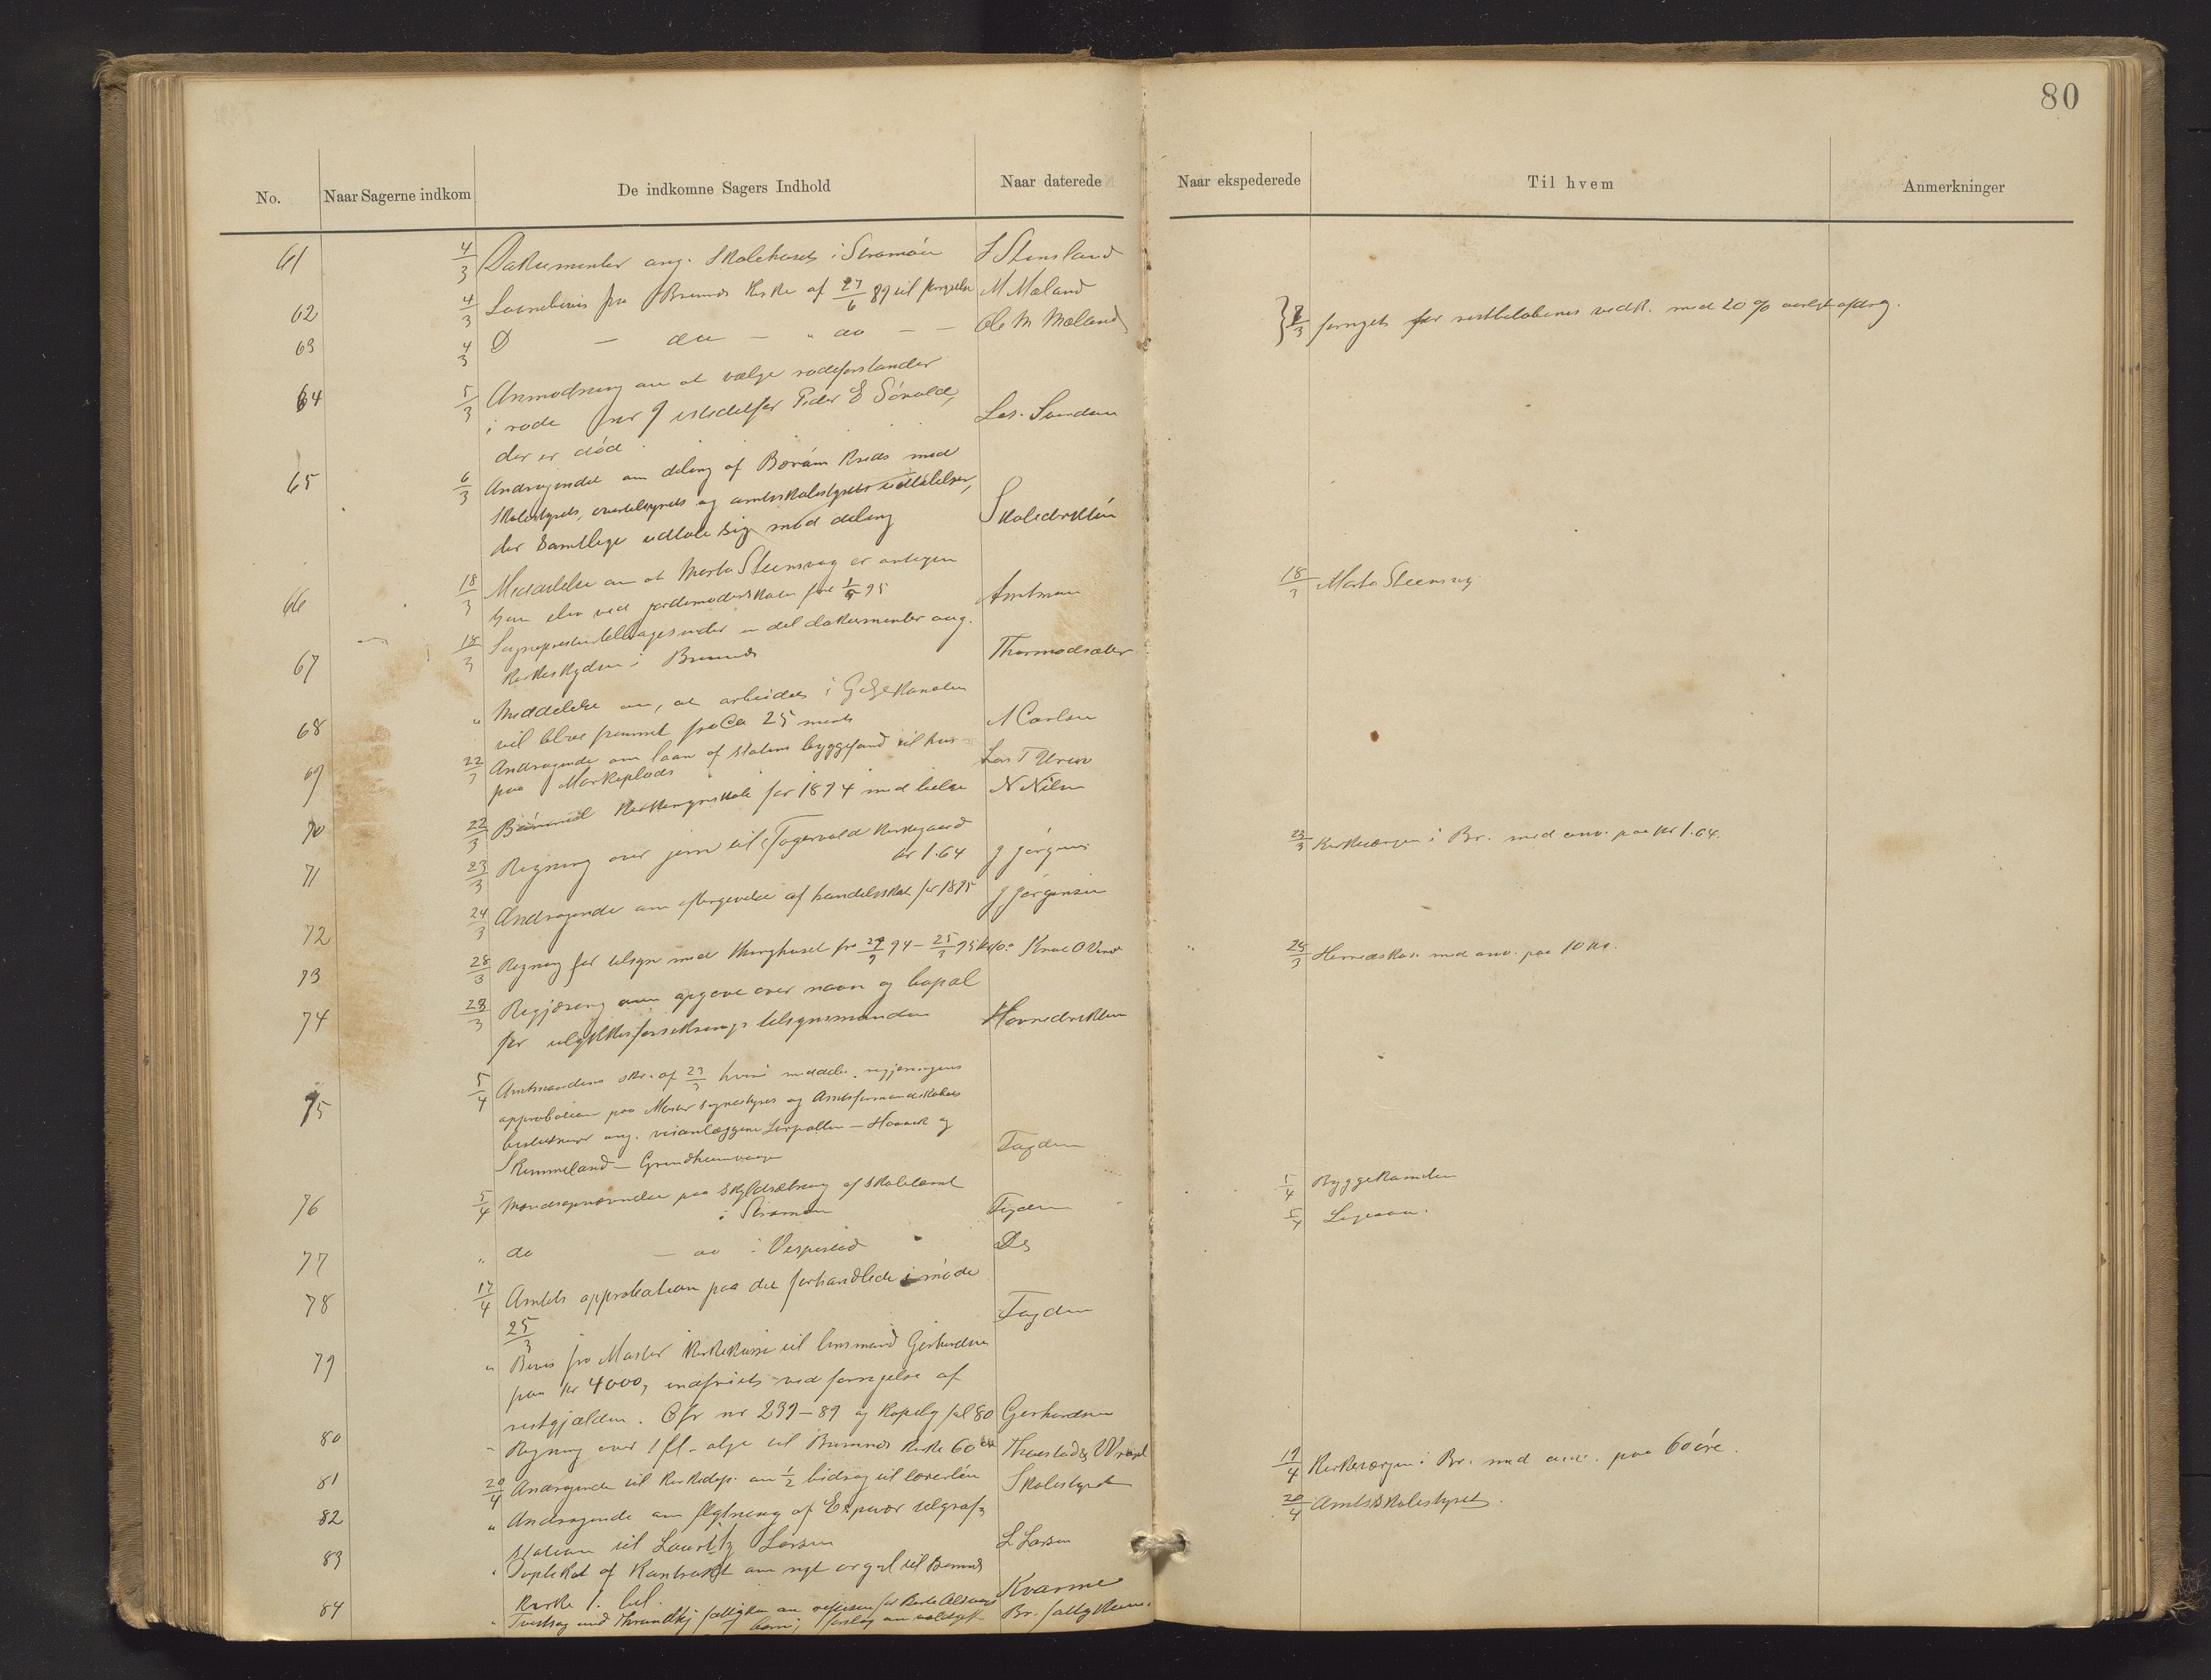 80
No. Naar Sagerne indkom De indkomne Sagers Indhold Naar daterede Naar ekspederede Til hvem Anmerkninger
61 4/3 Dokumenter ang. Skolehuset i Stramöen S Stensland
62 4/3 Laanebevis fra Bremnes Kirke af 27/6 89 til fornyelse M Mæland
63 4/3 D — do — " do — — Ole M Mæland
7/3 fornyet for restbeløbenes vedk. med 20 % aarligt afdrag.
64 5/3 Anmodning om at vælge rodeforstander
i rode nr 9 istedetfor Peder E Sörvold,
der er död Les. Svendsen
65 6/3 Andragendet om deling af Börøen kreds med
Skolestyrets, overtilsynets og amtsskolestyrets udtalelser,
der samtlige udtale sig mod deling Skoledirektören
66 18/3 Meddelelse om at Marta Steensvag er antagen
som elev ved jordemoderskolen fra 1/9 95 Amtman
18/3 Marta Steensvag
67 18/3 Sognepresten tilbagesender en del dokumenter ang.
Kirkeskyden i Bremnes Thormodsæter
68 " Meddelelse om, at arbeidet i Kanalen
vil blive fremmet fra Ca 25 marts A Carlsen
69 22/3 Andragende om laan af statens byggefond til hus
paa Markeplads Lars T Urevo
70 22/3 for 1894 med bielag N Nilsen
71 23/3 Regning over jern til Fagervold Kirkegaard
kr 1.64 J Jörgens
23/3 Kirkevergen i Br. med anv. paa kr 1.64.
72 24/3 Andragende om eftergivelse af handelsskat for 1895 J Jörgensen
73 28/3 Regning for tilsyn med Thinghuset fra 29/9 94 – 25/3 95 kr 10. Knut O
28/3 Herredskas. med anv. paa 10 kr.
74 28/3 Begjæring om opgave over navn og bopæl
for ulykkesforsikrings tilsynsmanden Havnedirektören
75 5/4 Amtmandens skr. af 23/3 hvori meddeles regjeringens
approbation paa Moster sognestyres og Amtsformandskabets
beslutninger ang. veianlæggene Leirpollen – Haavik og
Rimmeland – Grindheimvaagen Fogden
76 5/4 Mandsopnævnelse paa skyldsætning af skoletomt
i Stramöen Fogden
5/4 Byggekomiteen
5/4 Lagmann.
77 " do — do i Vespestad Ds
78 17/4 Amtets approbation paa det forhandlede i møde
25/3 Fogden
79 " Bevis fra Moster Kirkekasse til lensmand Gerhardsen
paa kr 4000, indfriet ved fornyelse af
restgjælden. Cfr nr 239–89 og Kopibog fol 80 Gerhardsen
80 " Regning over 1 fl. olje til Bremnes Kirke 60 öre
17/4 Kirkevergen i Br. med anv. paa 60 öre.
81 20/4 Andragende til Kirkedep. om 1/2 bidrag til lærerlön Skolestyret
20/4 Amtsskolestyret.
82 " Andragende om flytning af Espevær telegraf-
station til Lauritz Larsen L Larsen
83 " Duplikat af Kontrakt om nyt orgel til Bremnes
Kirke 1. bil. Kvarme
84 " Br. fattigkom.